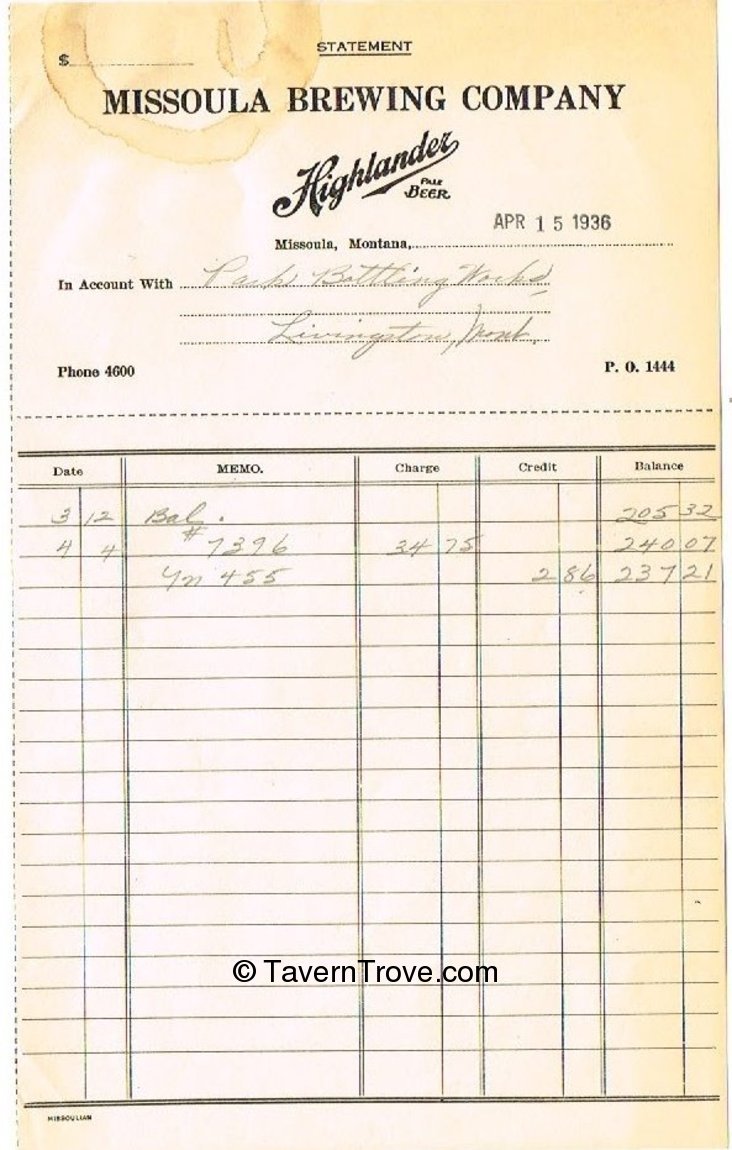 STATEMENT
$
MISSOULA BREWING COMPANY
Highlander
PALE
BEER
APR 15 1936
Missoula, Montana,
In Account With Park Bottling Works
Livingston, Mont.
Phone 4600 P. O. 1444
Date MEMO. Charge Credit Balance
3 12 Bal. 205 32
4 4 # 7396 34 75 240 07
455 2 86 237 21
© TavernTrove.com
MISSOULIAN